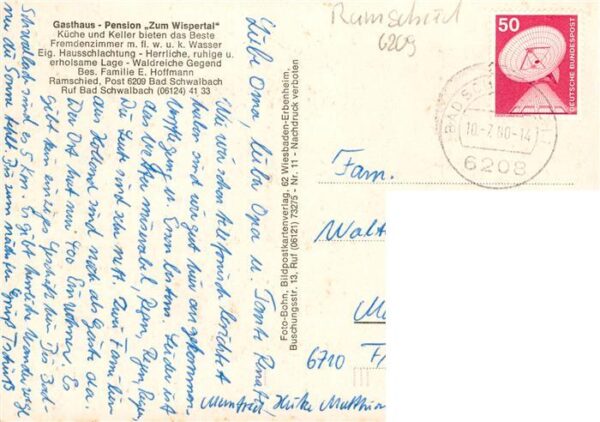 Gasthaus - Pension „Zum Wispertal“
Küche und Keller bieten das Beste
Fremdenzimmer m. fl. w. u. k. Wasser
Eig. Hausschlachtung - Herrliche, ruhige u.
erholsame Lage - Waldreiche Gegend
Bes. Familie E. Hoffmann
Ramschied, Post 6209 Bad Schwalbach
Ruf Bad Schwalbach (06124) 41 33
Liebe Oma, lieber Opa u. Tante Renate
Wie wir schon telefonisch berichtet
haben sind wir gut hier angekommen.
Verpflegung u. Essen bestens. Leider ist
das Wetter miserabel, Regen, Regen, Regen,
Die Leute sind sehr nett. Zwei Familien
aus Holland sind noch als Gäste da.
Der Ort hat um 400 Einwohner. Es
gibt ein einziges Geschäft hier. Bis Bad-
Schwalbach sind es 5 km. Es gibt herrliche Wanderwege
nur die Sonne fehlt. Bis zum nächsten Gruß Tschüß
Manfred, Heike Matthias
Foto-Bohn, Bildpostkartenverlag, 62 Wiesbaden-Erbenheim,
Buschungsstr. 13, Ruf (06121) 73275 - Nr. 11 - Nachdruck verboten
Ramschied
6209
50
DEUTSCHE BUNDESPOST
BAD S
10.-7.80-14
6208
Fam.
Walt
6710 F